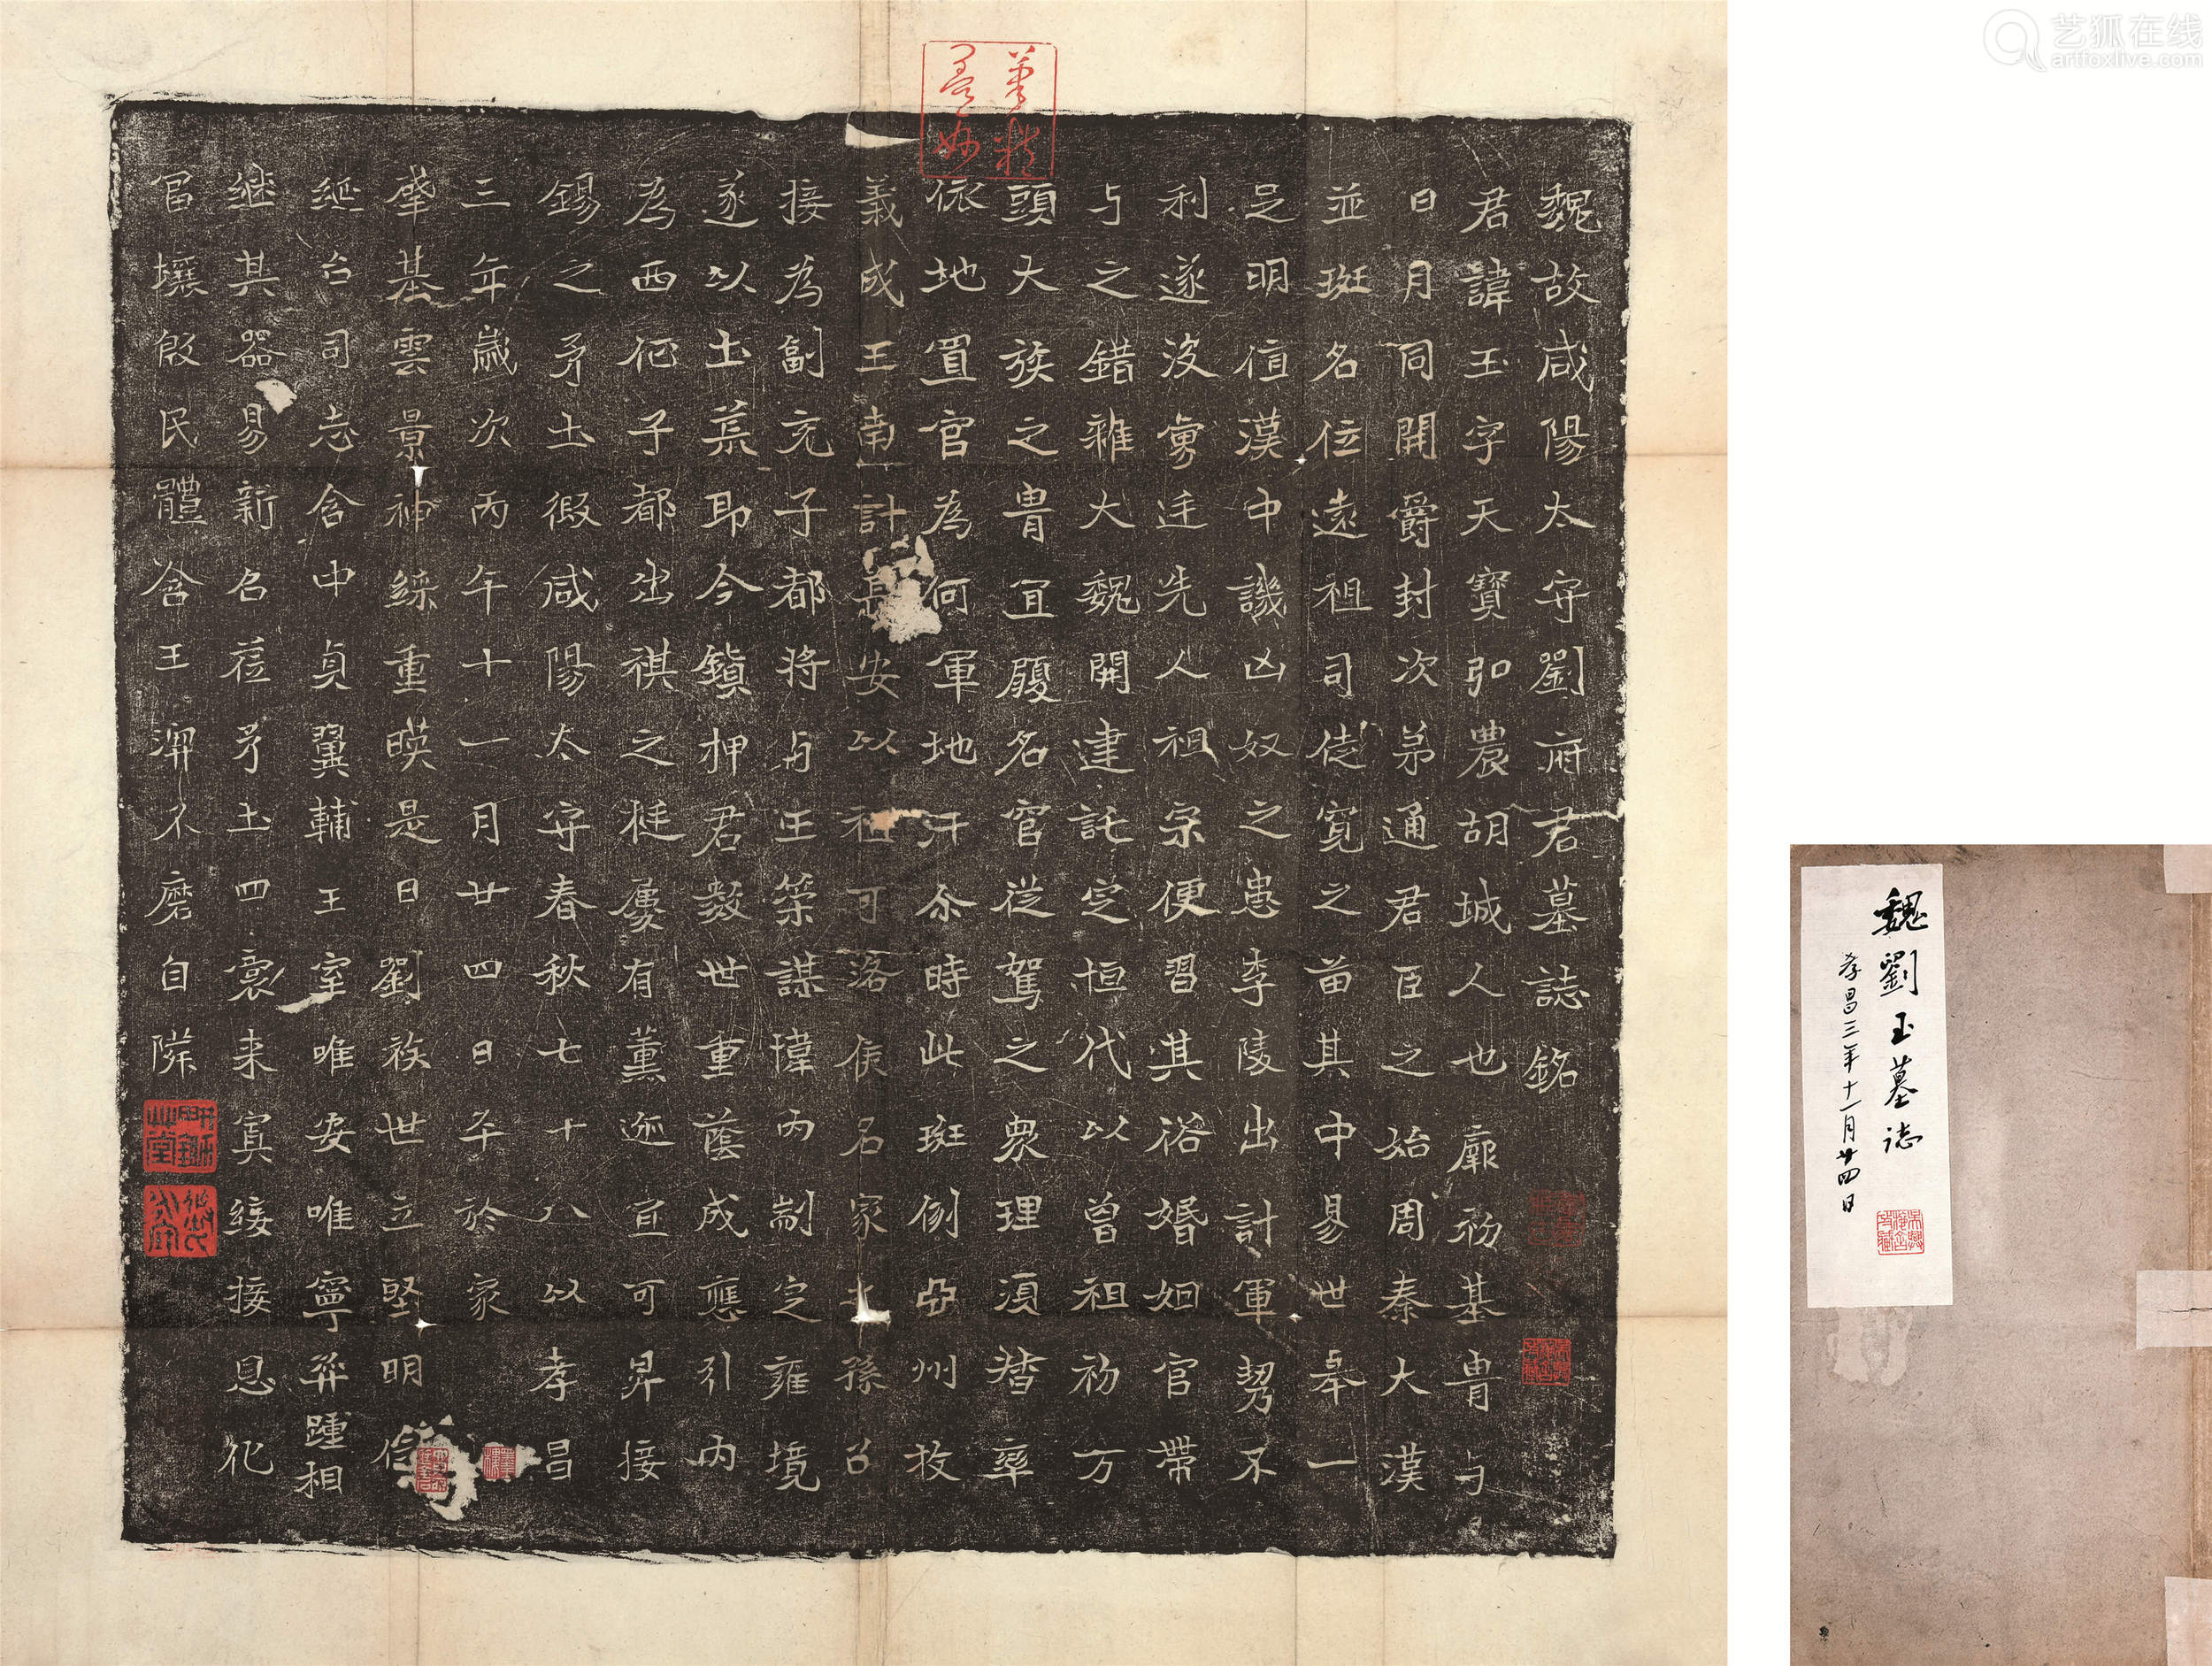 魏故咸陽太守劉府君墓誌銘
君諱玉字天寶弘農胡城人也厥初基胄与
日月同開爵封次弟通君臣之始周秦大漢
並班名位遠祖司徒寬之苗其中易世舉一
足明值漢中譏凶奴之患李陵出計軍勢不
利遂没勇廷先人祖宗便習其俗婚姻官帶
与之錯雜大魏開建託定恒代以曾祖初万
頭大族之胄宜履名官從駕之衆理須督率
依地置官為何軍地汗尒時此班例亞州牧
義成王南計長安以祖可洛侯名家之孫召
接為副充子都将与王策謀瑋内制定雍境
遂以土荒即今鎮押君數世重蔭成應引内
為西征子都出祺之梃屢有薰迹宜可昇接
錫之矛土假咸陽太守春秋七十八以孝昌
三年歲次丙午十一月廿四日卒於家
肇基雲景神綵重暎是曰劉族世立堅明信
綖台司志含中貞翼輔王室唯安唯寧弈踵相
继其器易新名莅矛土四裔来賓綏接恩化
冨壤殷民體含王澤不磨自隣
魏劉玉墓誌
孝昌三年十一月廿四日
艺狐在线
artfoxlive.com